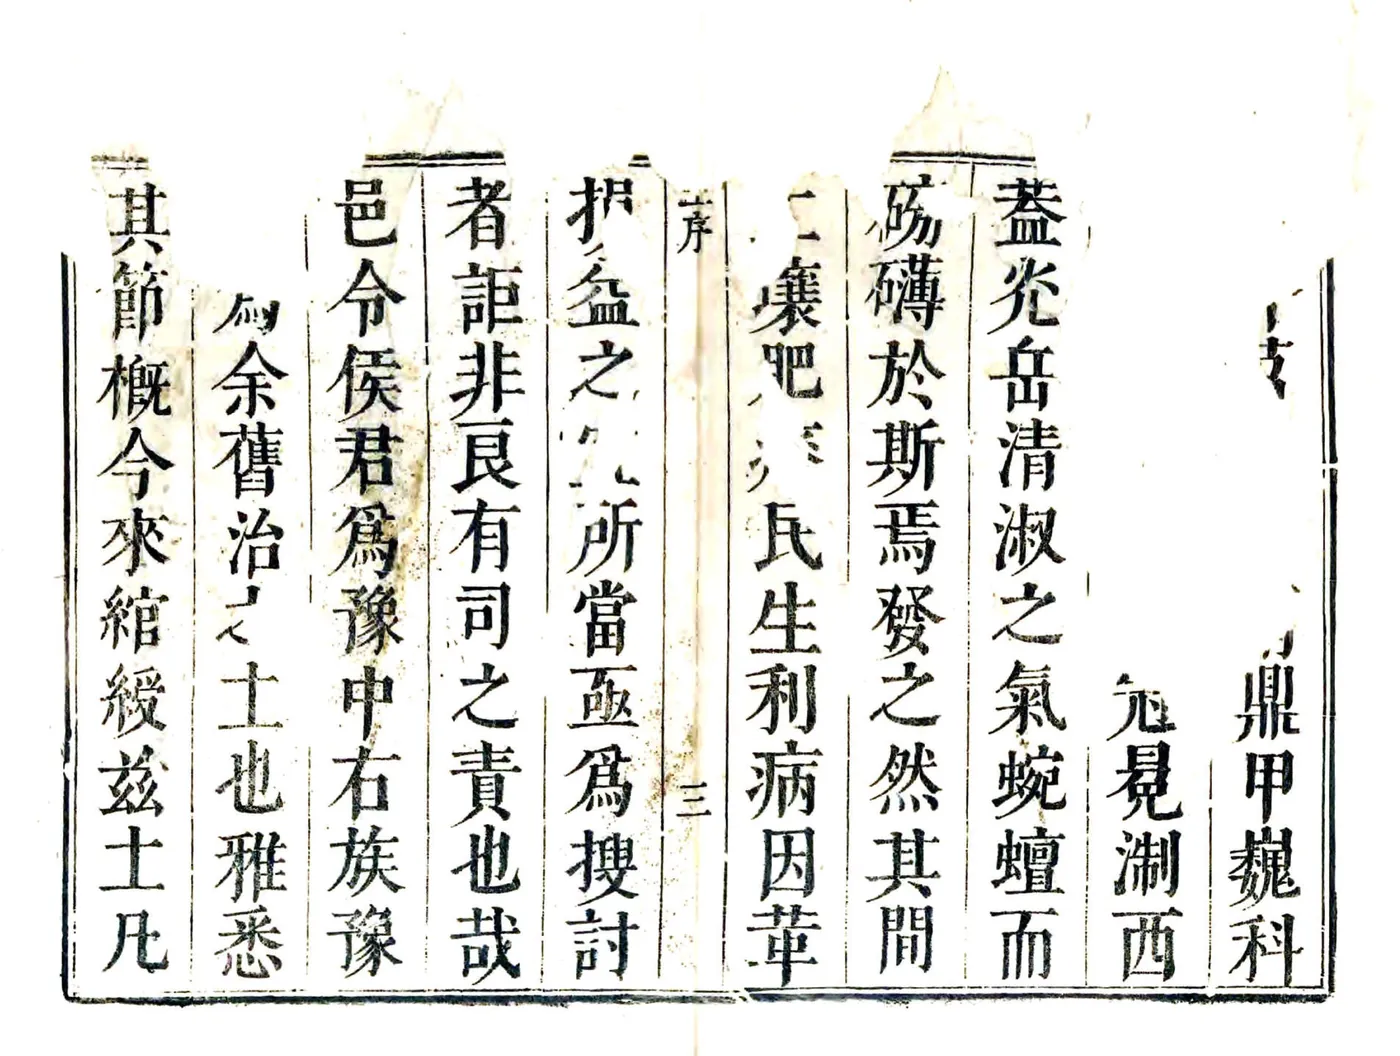 鼎甲巍科
冠冕淛西
蓋光岳清淑之氣蜿蟺而
磅礴於斯焉發之然其間
土壤肥 民生利病因革
序
三
損益之 所當亟爲搜討
者詎非良有司之責也哉
邑令侯君爲豫中右族豫
余舊治之土也雅悉
其節概今來綰綬茲土凡